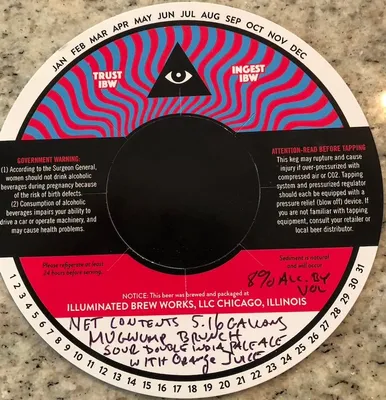 JAN FEB MAR APR MAY JUN JUL AUG SEP OCT NOV DEC
TRUST
IBW
INGEST
IBW
GOVERNMENT WARNING:
(1) According to the Surgeon General,
women should not drink alcoholic
beverages during pregnancy because
of the risk of birth defects.
(2) Consumption of alcoholic
beverages impairs your ability to
drive a car or operate machinery, and
may cause health problems.
ATTENTION-READ BEFORE TAPPING
This keg may rupture and cause
injury if over-pressurized with
compressed air or CO2. Tapping
system and pressurized regulator
should each be equipped with a
pressure relief (blow off) device. If
you are not familiar with tapping
equipment, consult your retailer or
local beer distributor.
Please refrigerate at least
24 hours before serving.
Sediment is natural
and will occur
8% ALC. BY
VOL
NOTICE: This beer was brewed and packaged at
ILLUMINATED BREW WORKS, LLC CHICAGO, ILLINOIS
NET CONTENTS 5.16 GALLONS
MUGWUMP BRUNCH
SOUR DOUBLE INDIA PALE ALE
WITH ORANGE JUICE
1 2 3 4 5 6 7 8 9 10 11 12 13 14 15 16 17 18 19 20 21 22 23 24 25 26 27 28 29 30 31